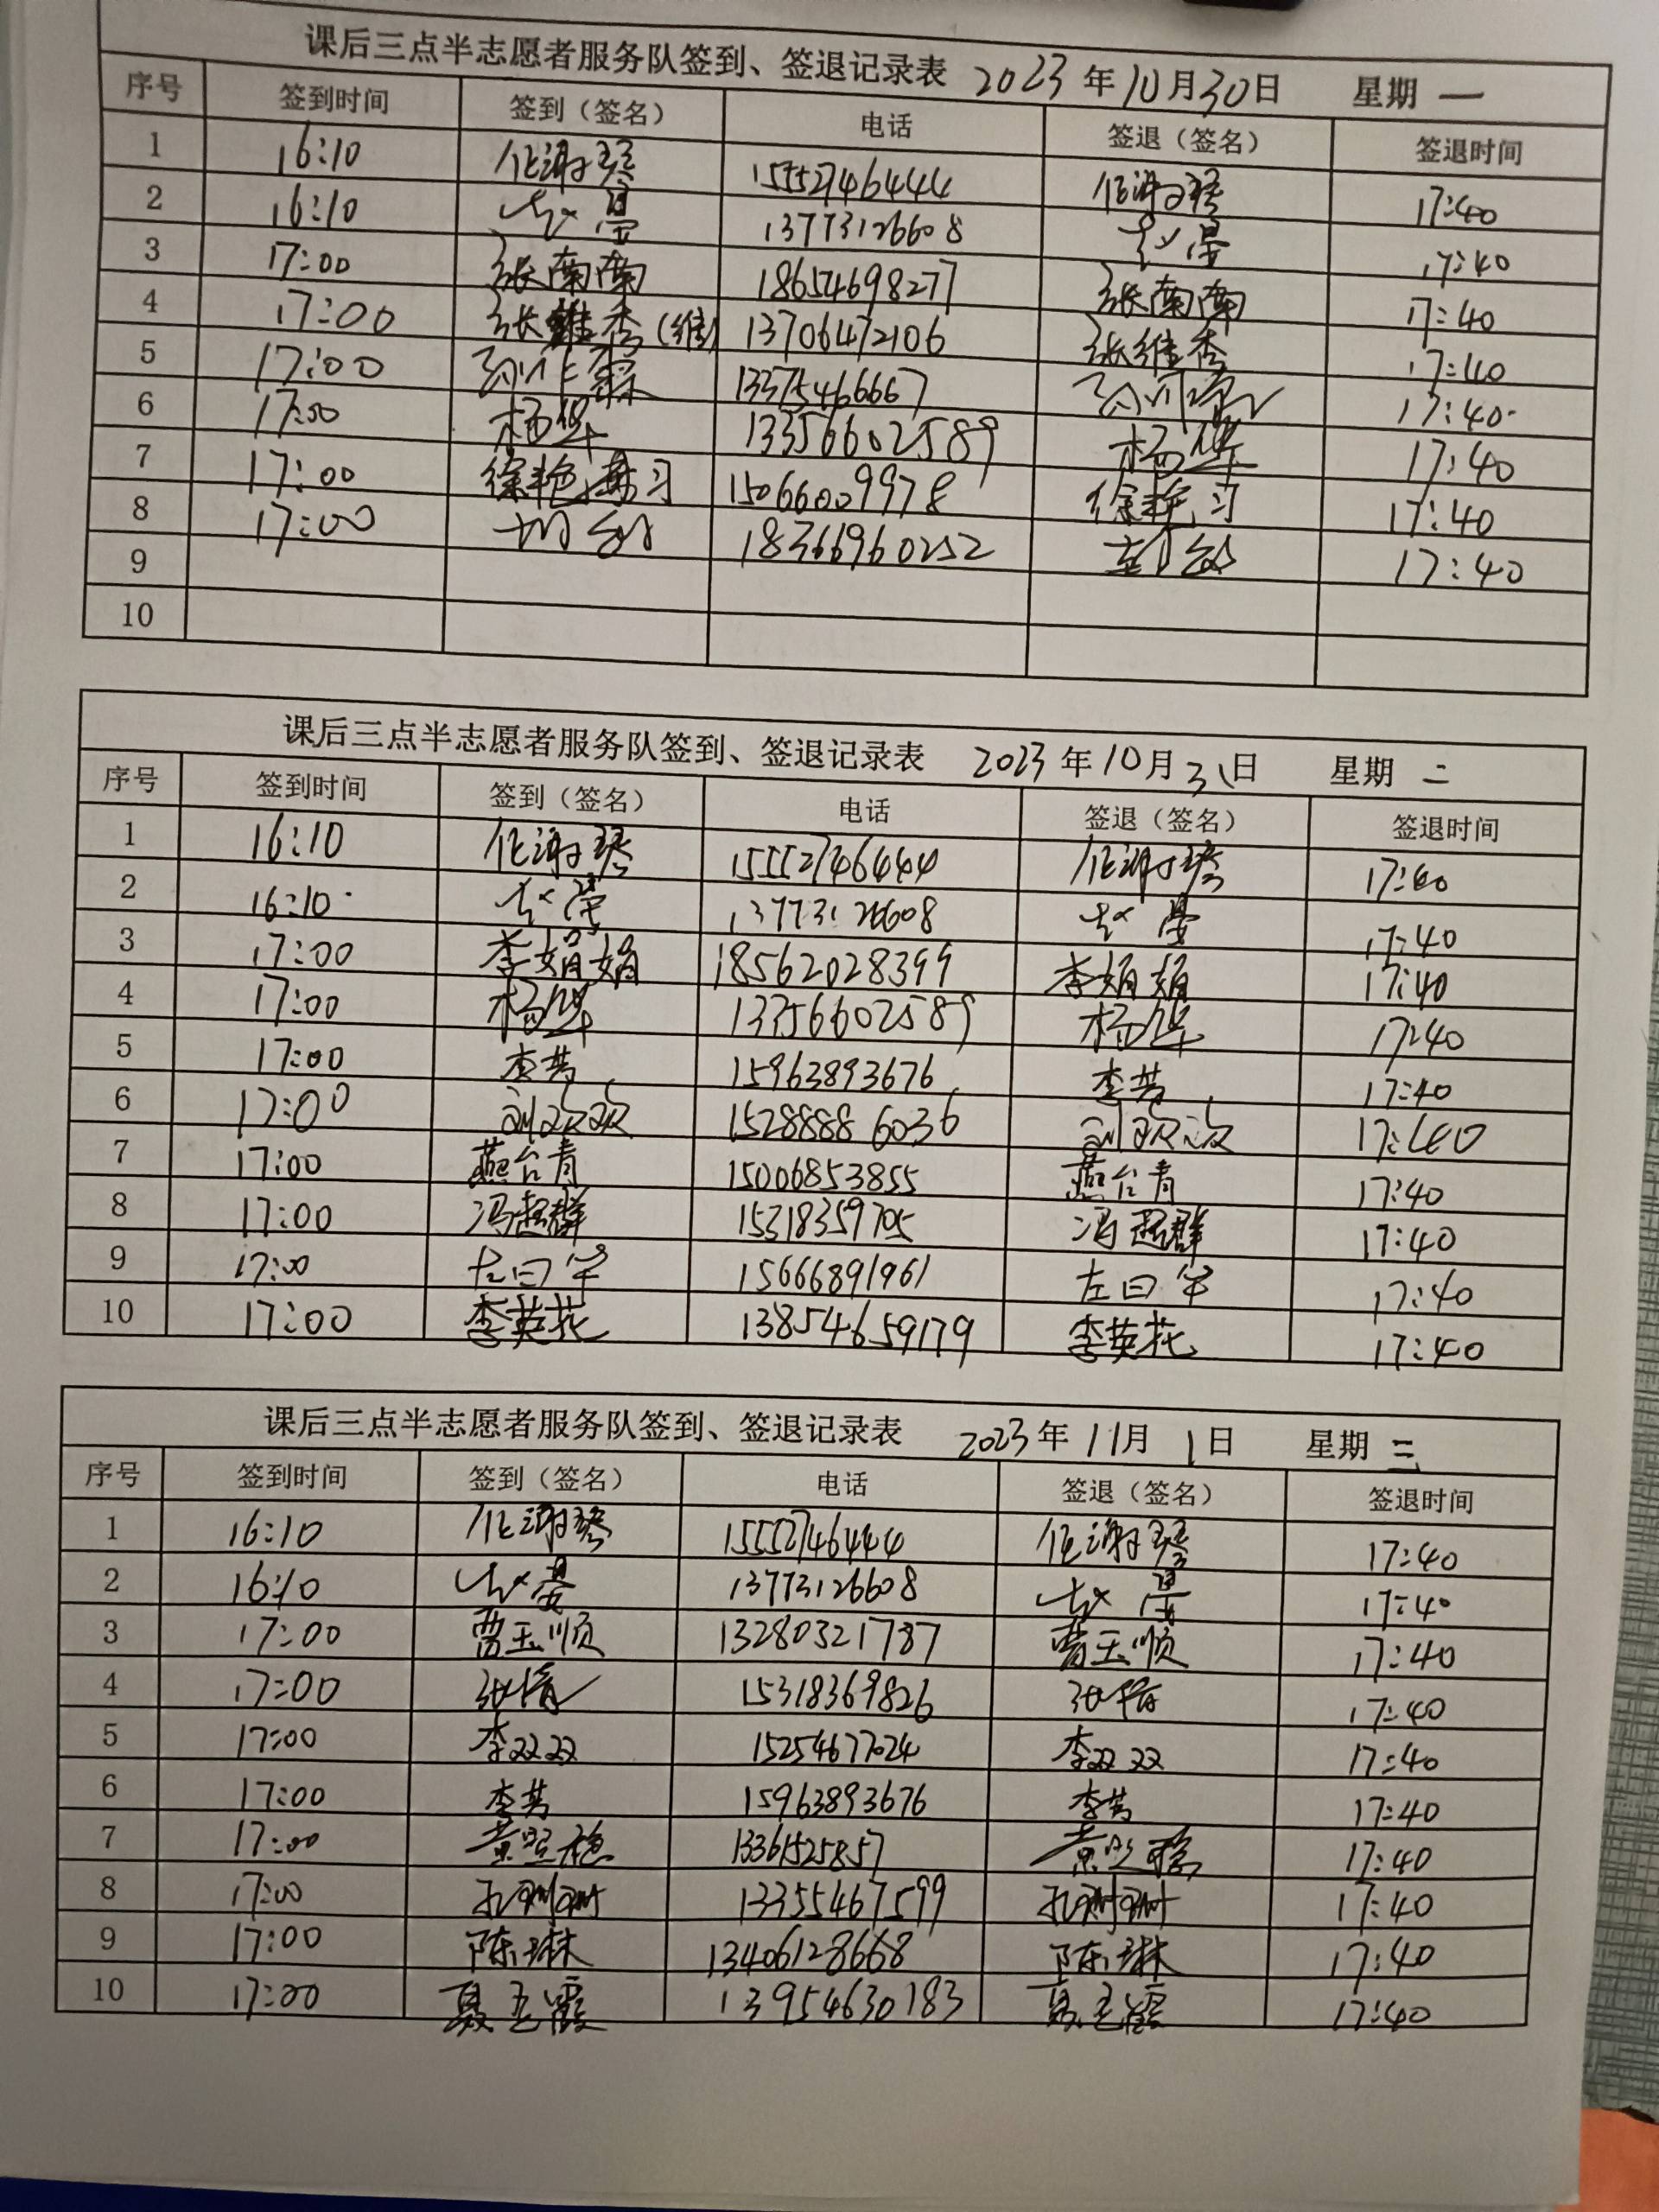 课后三点半志愿者服务队签到、签退记录表 2023年10月30日 星期一
序号 签到时间 签到（签名） 电话 签退（签名） 签退时间
1 16:10 15552746444 17:40
2 16:10 赵 13773126608 赵 17:40
3 17:00 张南南 18654698277 张南南 17:40
4 17:00 张维秀（维） 13706472106 张维秀 17:40
5 17:00 13375466667 17:40
6 17:00 杨华 13356602589 杨华 17:40
7 17:00 徐艳 15066009978 徐艳 17:40
8 17:00 18366960252 17:40
9
10
课后三点半志愿者服务队签到、签退记录表 2023年10月31日 星期二
序号 签到时间 签到（签名） 电话 签退（签名） 签退时间
1 16:10 15552746444 17:40
2 16:10 赵 13773126608 赵 17:40
3 17:00 李娟娟 18562028399 李娟娟 17:40
4 17:00 杨华 13356602589 杨华 17:40
5 17:00 李芳 15963893676 李芳 17:40
6 17:00 刘欢欢 15288886036 刘欢欢 17:40
7 17:00 燕台青 15006853855 燕台青 17:40
8 17:00 冯超群 15318359705 冯超群 17:40
9 17:00 左曰 15666891961 左曰 17:40
10 17:00 李英花 13854659179 李英花 17:40
课后三点半志愿者服务队签到、签退记录表 2023年11月1日 星期三
序号 签到时间 签到（签名） 电话 签退（签名） 签退时间
1 16:10 15552746444 17:40
2 16:10 赵 13773126608 赵 17:40
3 17:00 曹玉顺 13280321787 曹玉顺 17:40
4 17:00 张倩 15318369826 张倩 17:40
5 17:00 李双双 15254677024 李双双 17:40
6 17:00 李芳 15963893676 李芳 17:40
7 17:00 黄 13361525857 黄 17:40
8 17:00 孔珊珊 13355467599 孔珊珊 17:40
9 17:00 陈琳 13406128668 陈琳 17:40
10 17:00 聂玉霞 13954630183 聂玉霞 17:40